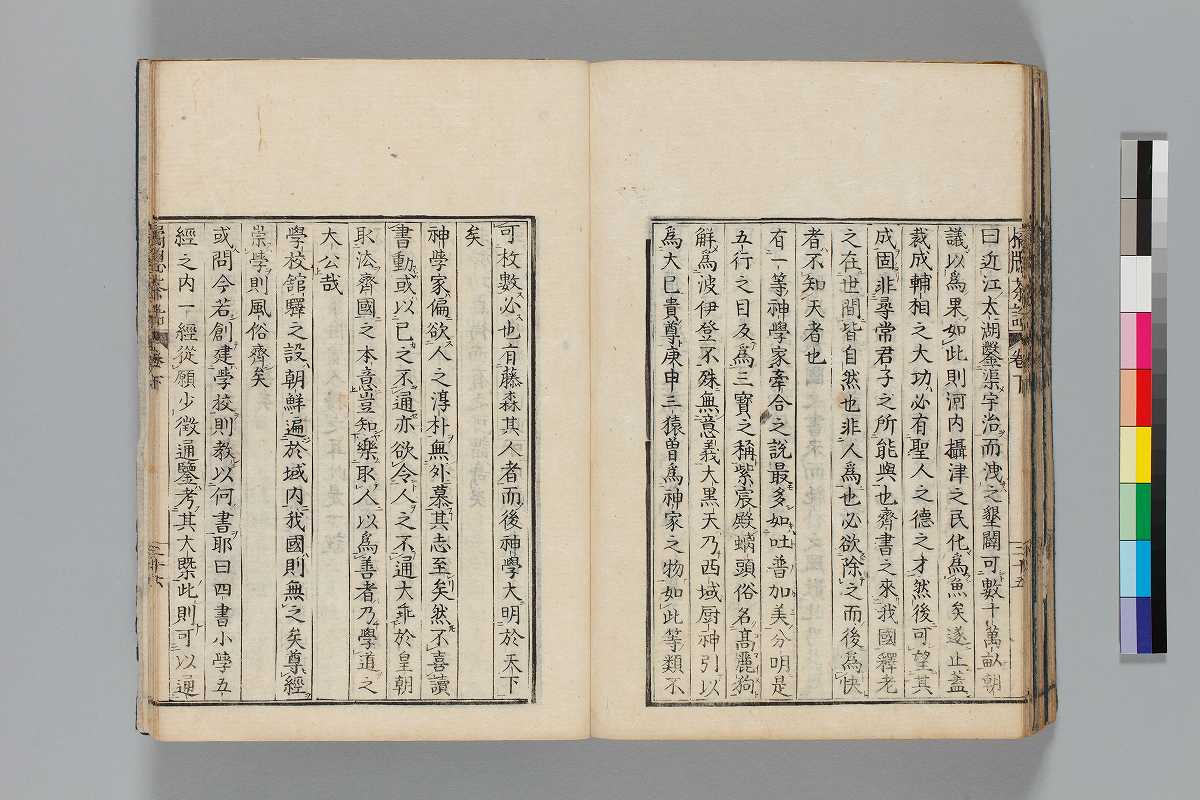 曰近江太湖鑿渠宇治而洩之墾闢可數十萬畝朝
議以爲果如此則河内攝津之民化爲魚矣遂止蓋
裁成輔相之大功必有聖人之德之才然後可望其
成固非尋常君子之所能與也齊書之來我國釋老
之在世間皆自然也非人爲也必欲除之而後爲快
者不知天者也
有一等神學家牽合之說最多如吐普加美分明是
五行之目反爲三寶之稱紫宸殿螭頭俗名高麗狗
解爲波伊登不殊無意義大黑天乃西域厨神引以
爲大已貴尊庚申三猿曽爲神家之物如此等類不
可枚數必也有藤森其人者而後神學大明於天下
矣
神學家偏欲人之淳朴無外慕其志至矣然不喜讀
書動或以已之不通亦欲令人之不通大乖於皇朝
取法齊國之本意豈知樂取人以爲善者乃學道之
大公哉
學校舘驛之設朝鮮遍於域内我國則無之矣尊經
崇學則風俗齊矣
或問今若創建學校則教以何書耶曰四書小學五
經之内一經從願少徵通鑒考其大槩此則可以通
卷下
三十五
卷下
三十六